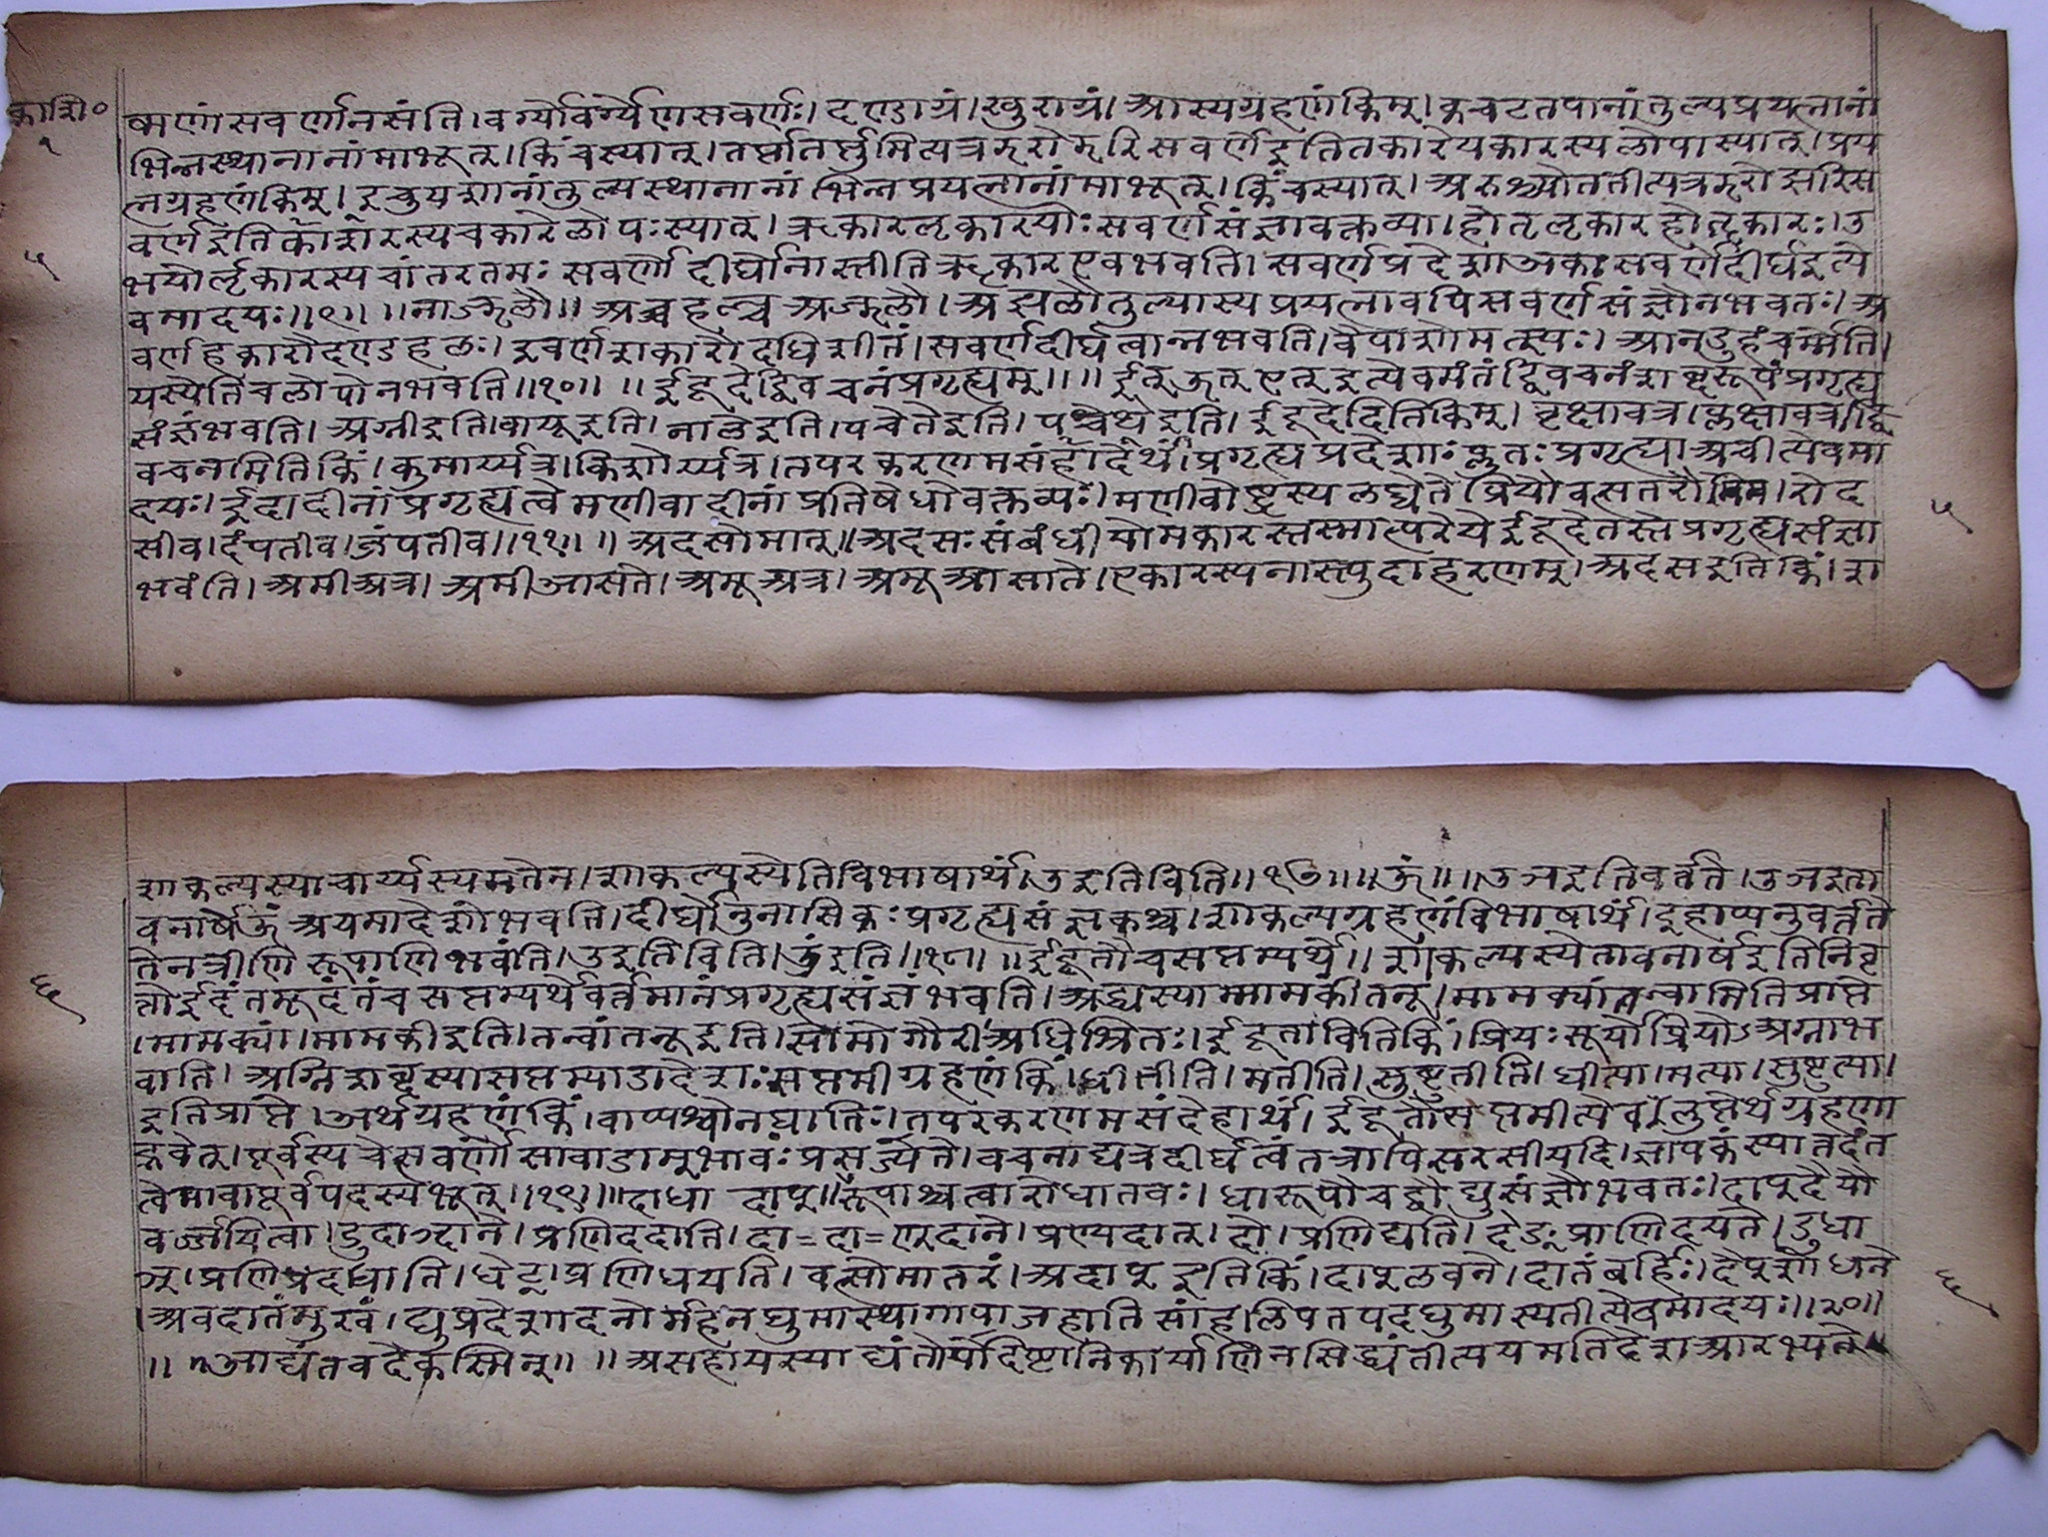 काशि० १
ष्मणां सवर्णा न संति । वर्ग्यो वर्ग्येण सवर्णः । दण्डाग्रं । खुराग्रं । आस्यग्रहणं किम् । कचटतपानां तुल्यप्रयत्नानां
भिन्नस्थानानां माभूत् । किंचस्यात् । तर्प्तातर्प्तुमित्यत्रझरोझरिसवर्णेइतितकारेपकारस्यलोपास्यात् । प्रय
त्नग्रहणं किम् । इचुयशानां तुल्यस्थानानां भिन्नप्रयत्नानां माभूत् । किंचस्यात् । अरुश्च्योततीत्यत्रझरोझरिस
वर्णेइतिशकारस्यचकारेलोपःस्यात् । ऋकारलृकारयोः सवर्णसंज्ञावक्तव्या । होतृलृकारहोतॄकारः । उ
५ भयोर्लृकारस्यचांतरतमः सवर्णोदीर्घोनास्तीतिॠकारएवभवति । सवर्णप्रदेशाअकःसवर्णेदीर्घइत्ये
वमादयः ॥ ९ ॥ ॥ नाज्झलौ ॥ अच्चहल्च अज्झलौ । अझलौतुल्यास्यप्रयत्नावपिसवर्णसंज्ञौनभवतः । अ
वर्णहकारौदण्डहलः । इवर्णशकारौदधिशीतं । सवर्णदीर्घत्वान्नभवति । वैपाशोमत्स्यः । आनडुहंचर्म्मेति ।
यस्येतिचलोपोनभवति ॥ १० ॥ ॥ ईदूदेद्द्विवचनंप्रगृह्यम् ॥ ॥ ईत्ऊत्एत्इत्येवमंतंद्विवचनंशब्दरूपंप्रगृह्य
संज्ञंभवति । अग्नीइति । वायूइति । मालेइति । पचेतेइति । पचेथेइति । ईदूदेदितिकिम् । वृक्षावत्र । प्लक्षावत्र । द्वि
वचनमितिकिं । कुमार्य्यत्र । किशोर्य्यत्र । तपरकरणमसंदेहार्थं । प्रगृह्यप्रदेशाः प्लुतः प्रगृह्या अचीत्येवमा
दयः । ईदादीनांप्रगृह्यत्वेमणीवादीनांप्रतिषेधोवक्तव्यः । मणीवोष्ट्रस्यलंबेतेप्रियौवत्सतरौमम । रोद ५
सीव । दंपतीव । जंपतीव ॥ ११ ॥ ॥ अदसोमात् ॥ अदसःसंबंधीयोमकारस्तस्मात्परेयेईदूदेतस्तेप्रगृह्यसंज्ञा
भवंति । अमीअत्र । अमीआसते । अमूअत्र । अमूआसाते । एकारस्यनास्त्युदाहरणम् । अदसइतिकिं । श
शाकल्यस्याचार्य्यस्यमतेन । शाकल्यस्येतिविभाषार्थं । उइतिविति ॥ १७ ॥ ॥ ऊँ ॥ ॥ उञइतिवर्त्तते । उञइता
वनार्षेऊँअयमादेशोभवति । दीर्घोनुनासिकः प्रगृह्यसंज्ञकश्च । शाकल्यग्रहणंविभाषार्थं । इहाप्यनुवर्त्तते
तेनत्रीणिरूपाणिभवंति । उइतिविति । ऊँइति ॥ १८ ॥ ॥ ईदूतौचसप्तम्यर्थे ॥ शाकल्यस्येतावनार्षइतिनिवृ
६ त्तंईदंतमूदंतंचसप्तम्यर्थेवर्त्तमानंप्रगृह्यसंज्ञंभवति । अद्ध्यस्याम्मामकीतनू । मामक्यांतन्वामितिप्राप्ते
। मामक्यां । मामकीइति । तन्वांतनूइति । सोमोगौरीअधिश्रितः । ईदूतावितिकिं । प्रियः सूर्योप्रियोऽअग्नाभ
वाति । अग्निशब्दस्यासप्तम्याडादेशः सप्तमीग्रहणंकिं । धीतीति । मतीति । सुष्टुतीति । धीत्या । मत्या । सुष्टुत्या ।
इतिप्राप्ते । अर्थग्रहणंकिं । वाप्यश्वोनद्यातिः । तपरकरणमसंदेहार्थं । ईदूतौसप्तमीत्येवलुप्तेर्थग्रहणा
द्भवेत् । पूर्वस्यचेत्सवर्णोसावाडाम्भावः प्रसज्यते । वचनाद्यत्रदीर्घत्वंतत्रापिसरसीयदि । ज्ञापकंस्यात्तदंत
त्वेमावापूर्वपदस्यभूत् ॥ १९ ॥ ॥ दाधा दाप् ॥ रूपाश्चत्वारोधातवः । धारूपौचद्वौघुसंज्ञौभवतः । दाप्दैपौ
वर्ज्जयित्वा । डुदाञ्दाने । प्रणिददाति । दा = दा = ण्दाने । प्रण्यदात् । दो । प्रणिद्यति । देङ् प्रणिदयते । डुधा
ञ् । प्रणिप्रदधाति । धेट् । प्रणिधयति । वत्सोमातरं । अदाप्इतिकिं । दाप्लवने । दातंबर्हिः । दैप्शोधने ६
। अवदातंमुखं । घुप्रदेशादनोर्महेनघुमास्थागापाजहातिसांहलिपतपदघुमास्यतीत्येवमादयः ॥ २० ॥
॥ आद्यंतवदेकस्मिन् ॥ ॥ असहायस्याद्यंतोपदिष्टानिकार्याणिनसिद्ध्यंतीत्ययमतिदेशआरभ्यते